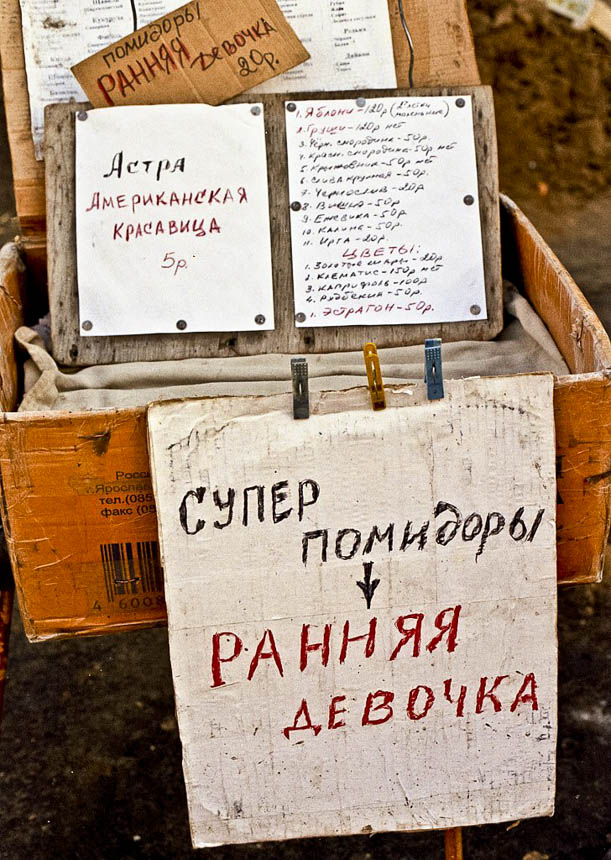 помидоры
РАННЯЯ
ДЕВОЧКА
20р.
АСТРА
АМЕРИКАНСКАЯ
КРАСАВИЦА
5р.
1. ЯБЛОНИ-120р
2. ГРУШИ-120р НЕТ
3. ЧЁРН. СМОРОДИНА-50р.
4. КРАСН. СМОРОДИНА-50р. НЕТ
5. КРЫЖОВНИК-50р НЕТ
6. СЛИВА КРУПНАЯ-50р.
7. ЧЕРНОСЛИВ-20р
8. ВИШНЯ-50р
9. ЕЖЕВИКА-50р.
10. КАЛИНА-50р.
11. ИРГА-20р.
ЦВЕТЫ:
1. ЗОЛОТЫЕ ШАРЫ-20р.
2. КЛЕМАТИС-150р НЕТ
3. КАПРИФОЛЬ-100р
4. РУДБЕКИЯ-50р.
1. ЭСТРАГОН-50р.
Росс
г.Ярослав
тел.(085
факс (08
4 6008
СУПЕР
ПОМИДОРЫ
РАННЯЯ
ДЕВОЧКА